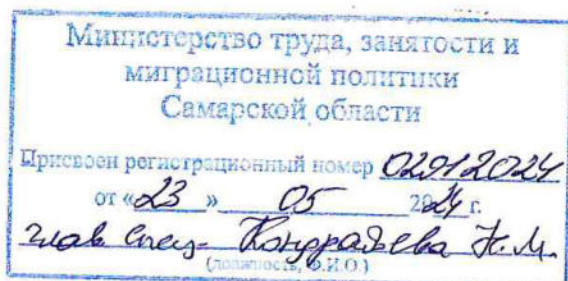 Министерство труда, занятости и
миграционной политики
Самарской области
Присвоен регистрационный номер 02912024
от «23» 05 2024 г.
глав спец- Кондратьева Н.М.
(должность, Ф.И.О.)